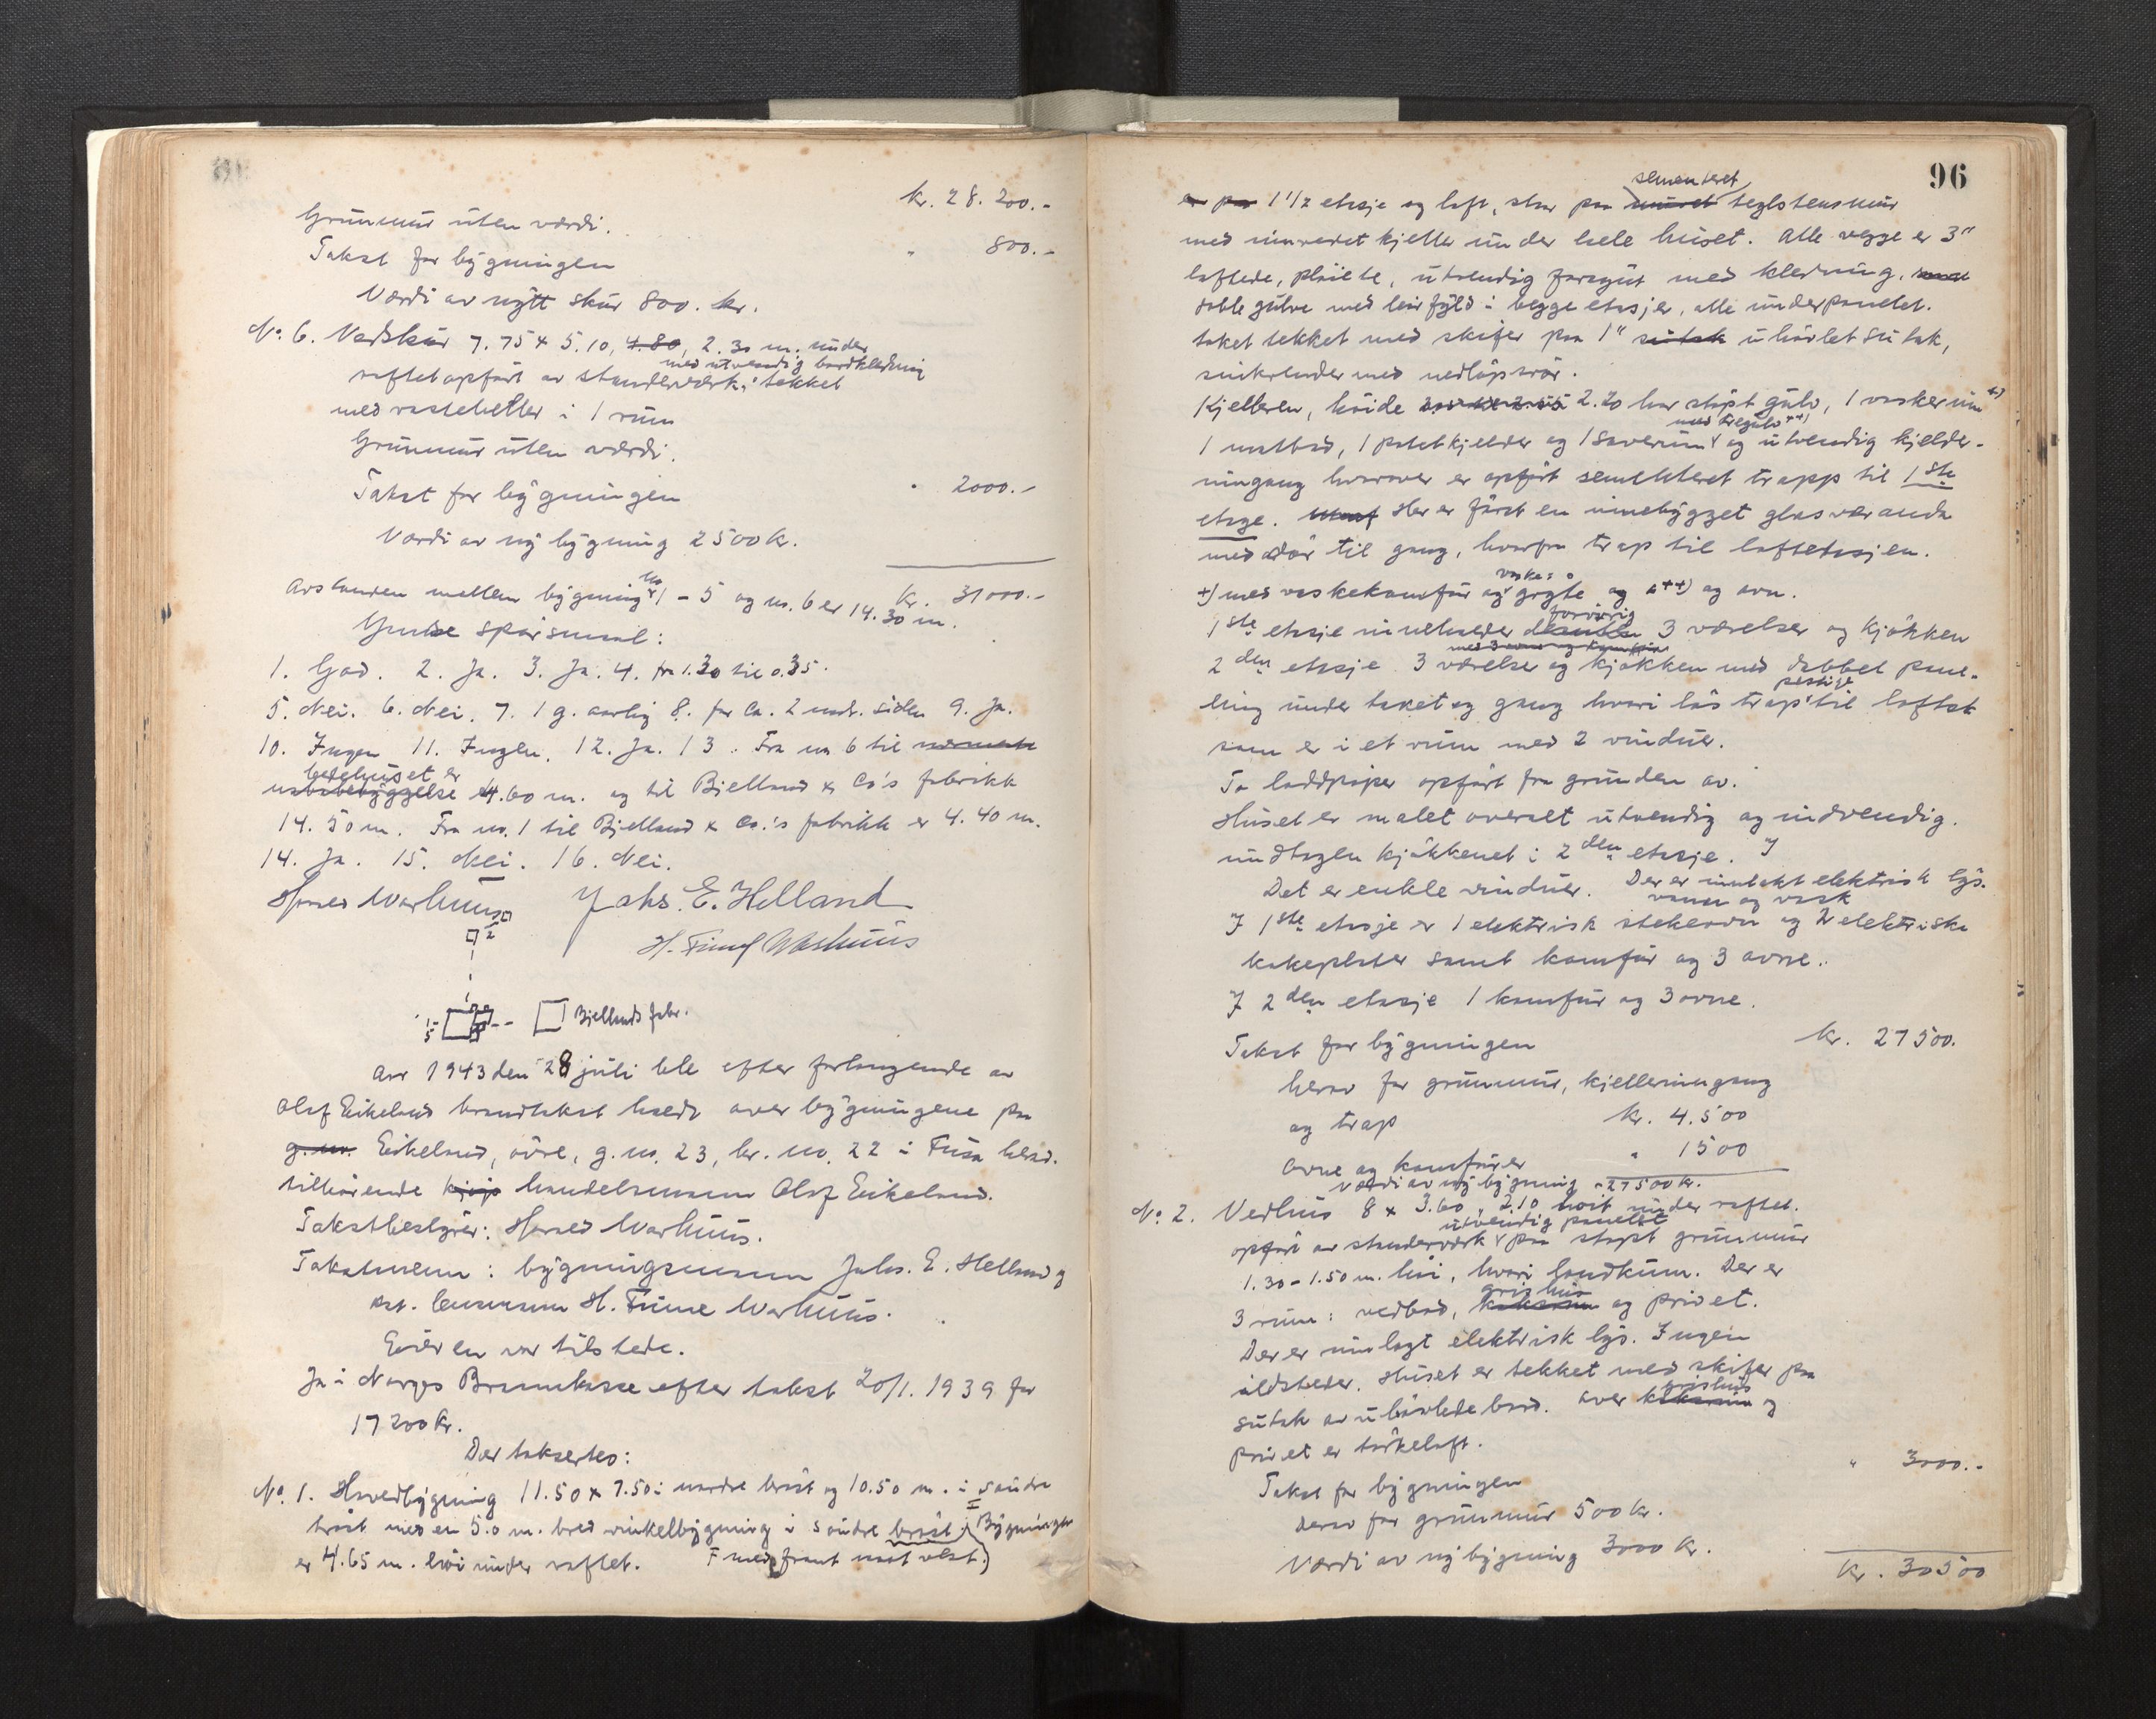 kr. 28.200.-
Grunnmur uten værdi.
Takst for bygningen " 800.-
Værdi av nytt skur 800. kr.
No. 6. Vedskur 7.75 x 5.10, 4.80, 2.30 m. under
med utvendig bordkledning
raftet opført av stenderverk, tekket
med rasteheller i 1 rum
Grunnmur uten værdi.
Takst for bygningen " 2000.-
Værdi av ny bygning 2500 kr.
kr. 31000.-
Avstanden mellem bygning no 1 - 5 og no. 6 er 14.30 m.
Givne spørsmaal:
1. God. 2. Ja. 3. Ja. 4. fra 1.30 til 0.35.
5. Nei. 6. Nei. 7. 1 g. aarlig 8. for ca. 2 mndr. siden 9. Ja.
10. Ingen 11. Ingen. 12. Ja. 13. Fra no 6 til nærmeste
bedehuset er
nabobebyggelse 4.60 m. og til Bjelland & Co's fabrikk
14.50 m. Fra no. 1 til Bjelland & Co.'s fabrikk er 4.40 m.
14. Ja. 15. Nei. 16. Nei.
Warhuus Johs. E. Helland
H. Finne Warhuus
2
5
Bjellands fabr.
Aar 1943 den 28 juli ble efter forlangende av
Olaf Eikeland brandtakst holdt over bygningene paa
g. no. Eikeland, øvre, g. no. 23, br. no. 22 i Fusa herad.
tilhørende kjøp handelsmann Olaf Eikeland.
Takstbestyrer: Warhuus.
Takstmenn: bygningsmann Johs. E. Helland og
ast. lensmann H. Finne Warhuus.
Eieren var tilstede.
Ja i Norges Brannkasse efter takst 20/1. 1939 for
17200 kr.
Der taksertes:
No. 1. Hovedbygning 11.50 x 7.50 i nordre brøst og 10.50 m. i søndre
brøst med en 5.0 m. bred vinkelbygning i søndre brøst. Bygningen
er 4.65 m. høi under raftet. F med front mot vest.)
96
sementeret
er paa 1 1/2 etasje og loft, staar paa muret teglstensmur
med innredet kjeller under hele huset. Alle vegge er 3"
laftede, pløiete, utvendig forøvrigt med kledning.
doble gulve med leirfyld i begge etasjer, alle underpanelet.
taket tekket med skifer paa 1" sutak uhøvlet sutak,
sinkrender med nedløpsrør.
Kjelleren, høide 2.20 har støpt gulv, 1 vaskerum +)
med tregulv ++)
1 matbod, 1 potetkjelder og 1 soverum og utvendig kjelder-
ningang hvorover er opført sementeret trapp til 1ste
etage. Her er først en innebygget glasveranda
med dør til gang, hvorfra trap til loftetasjen.
vaske:
+) med vaskekomfur og gryte og ++) og ovn.
forøvrig
1ste etasje inneholder 3 værelser og kjøkken
med 3 ovne og komfur
2den etasje 3 værelser og kjøkken med dobbel pane-
ling under taket og gang hvori løs trap til loftet
som er i et rum med 2 vinduer.
To loddpiper opført fra grunden av.
Huset er malet overalt utvendig og indvendig.
undtagen kjøkkenet i 2den etasje.
Det er enkle vinduer. Der er innlakt elektrisk lys.
vann og vask
I 1ste etasje er 1 elektrisk stekeovn og 2 elektriske
kokeplater samt komfur og 3 ovne.
I 2den etasje 1 komfur og 3 ovne.
Takst for bygningen kr. 27500.
herav for grunnmur, kjelleringang
og trap kr. 4.500
ovne og komfurer " 1500
Værdi av ny bygning - 27500 kr.
No. 2. Vedhus 8 x 3.60, 2.10 høit under raftet.
utvendig panelet
opført av stenderverk paa støpt grunnmur
1.30 - 1.50 m. høi, hvori landkum. Der er
grishus
3 rum: vedbod, og privet.
Der er innlagt elektrisk lys. Ingen
ildsteder. Huset er tekket med skifer paa
grishus
sutak av uhøvlede bord. over og
privet er tørkeloft.
Takst for bygningen " 3000.-
derav for grunnmur 500 kr.
Værdi av ny bygning 3000 kr.
kr. 30500